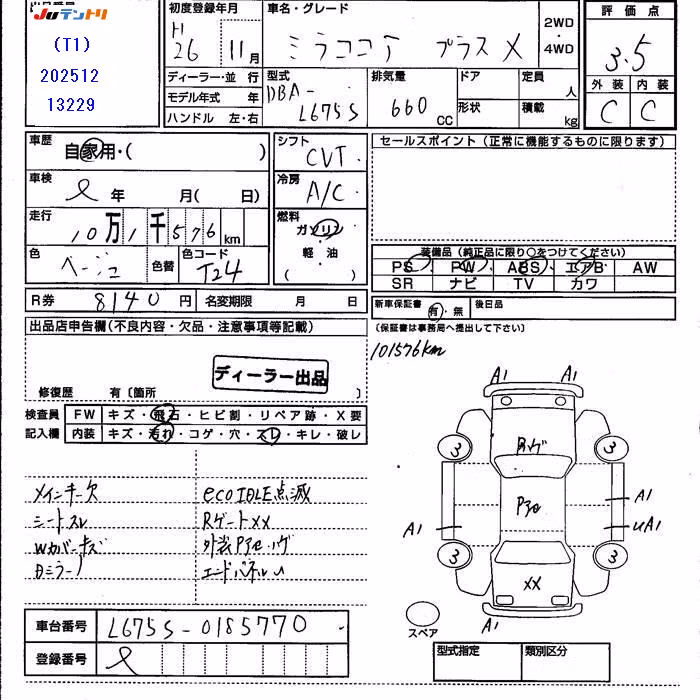 Juテントリ
(T1)
202512
13229
初度登録年月
H
26年 11月
車名・グレード
ミラココア プラスX
2WD
・
4WD
評価点
3.5
外装 内装
C C
ディーラー・並 行
モデル年式 年
ハンドル 左・右
型式
DBA-
L675S
排気量
660
CC
ドア
形状
定員
人
積載
kg
車歴
自家用・( )
車検
年 月( 日)
走行
10万1千576km
色
ベージュ
色替
色コード
T24
シフト
CVT
冷房
A/C
燃料
ガソリン
・
軽・油
( )
セールスポイント(正常に機能するものに限ります)
装備品(純正品に限り○をつけてください)
PS PW ABS エアB AW
SR ナビ TV カワ
R券 8140円 名変期限 月 日
新車保証書 有・無 後日品
(保証書は事務局へ提出して下さい)
101576km
出品店申告欄(不良内容・欠品・注意事項等記載)
ディーラー出品
修復歴 有〔箇所 〕
検査員 FW キズ・飛石・ヒビ割・リペア跡・X要
記入欄 内装 キズ・汚れ・コゲ・穴・スレ・キレ・破レ
メインキー欠
シートスレ
Wカバーキズ
Dミラー
ecoIDLE点滅
RゲートXX
外装Pアセ・ハゲ
エンドパネルU
A1 A1
Rハゲ
3 3
Pアセ
A1
A1
UA1
3 3
XX
A1
スペア
車台番号 L675S-0185770
登録番号
型式指定 類別区分